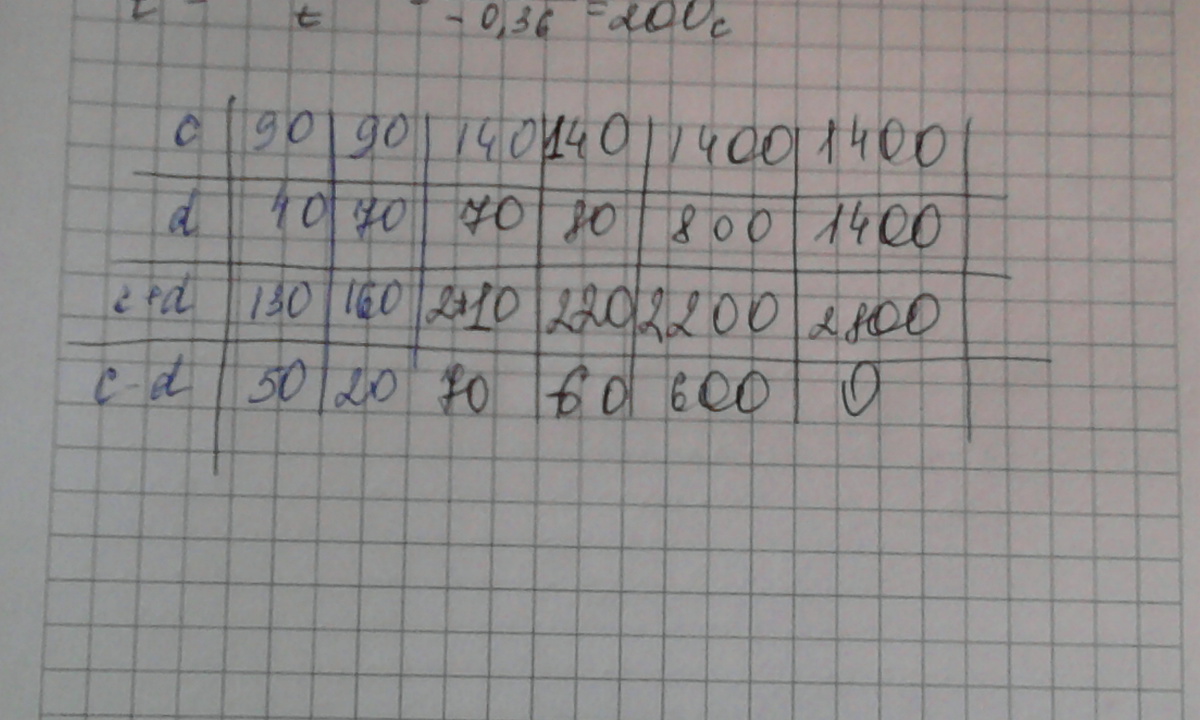 t - 0,36 = 200c
c 90 90 140 140 1400 1400
d 40 70 70 80 800 1400
c+d 130 160 210 220 2200 2800
c-d 50 20 70 60 600 0